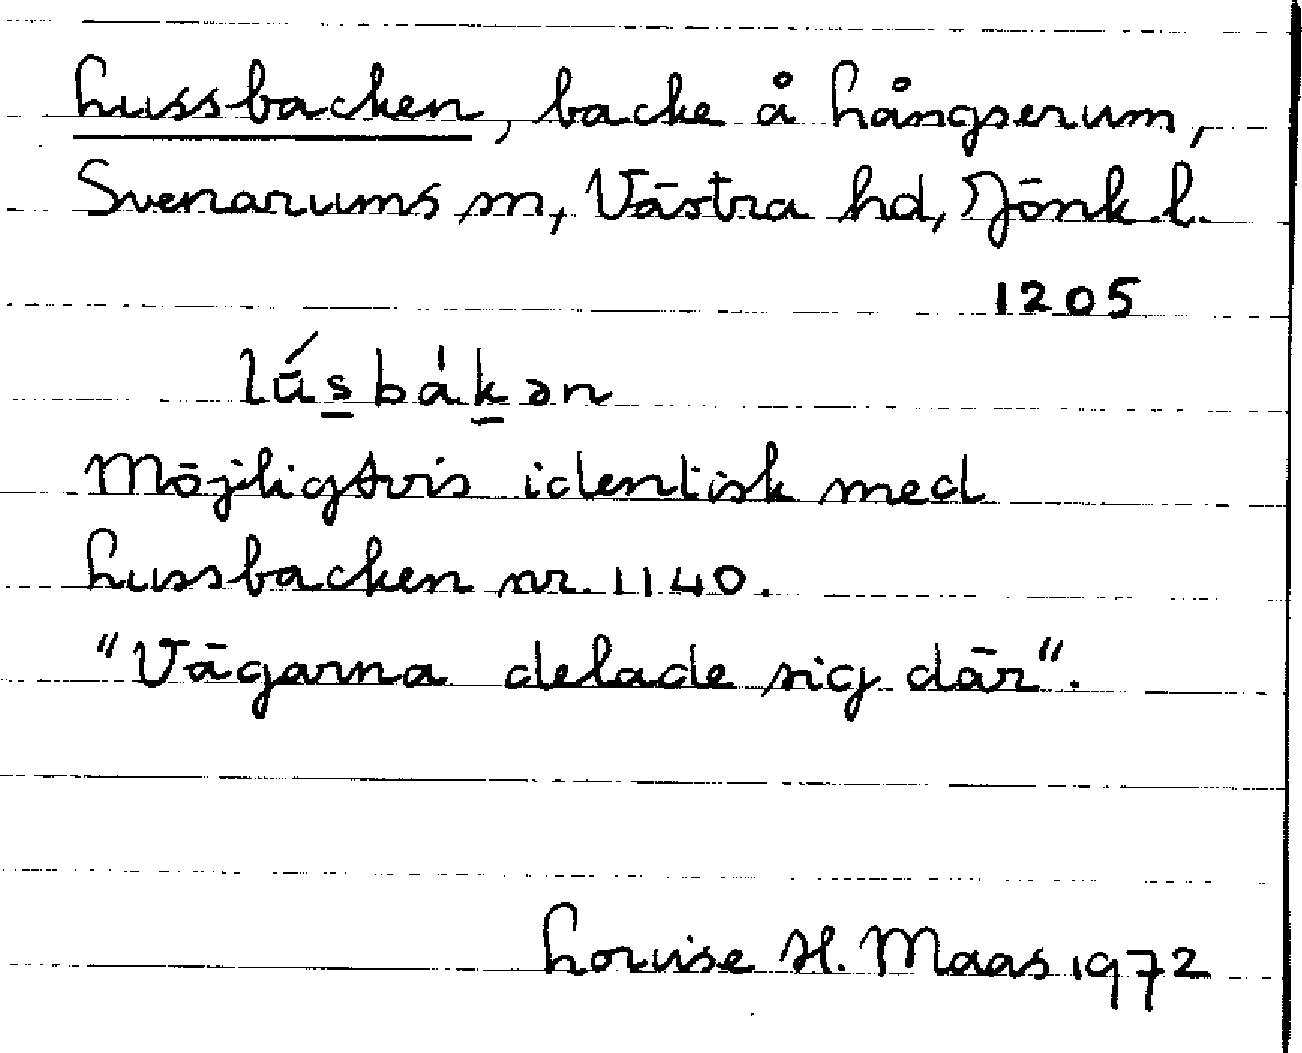 Lussbacken, backe å Långserum,
Svenarums sn, Västra hd, Jönk. l.
1205
lū́sbákən
Möjligtvis identisk med
Lussbacken nr. 1140.
"Vägarna delade sig där".
Louise H. Maas 1972